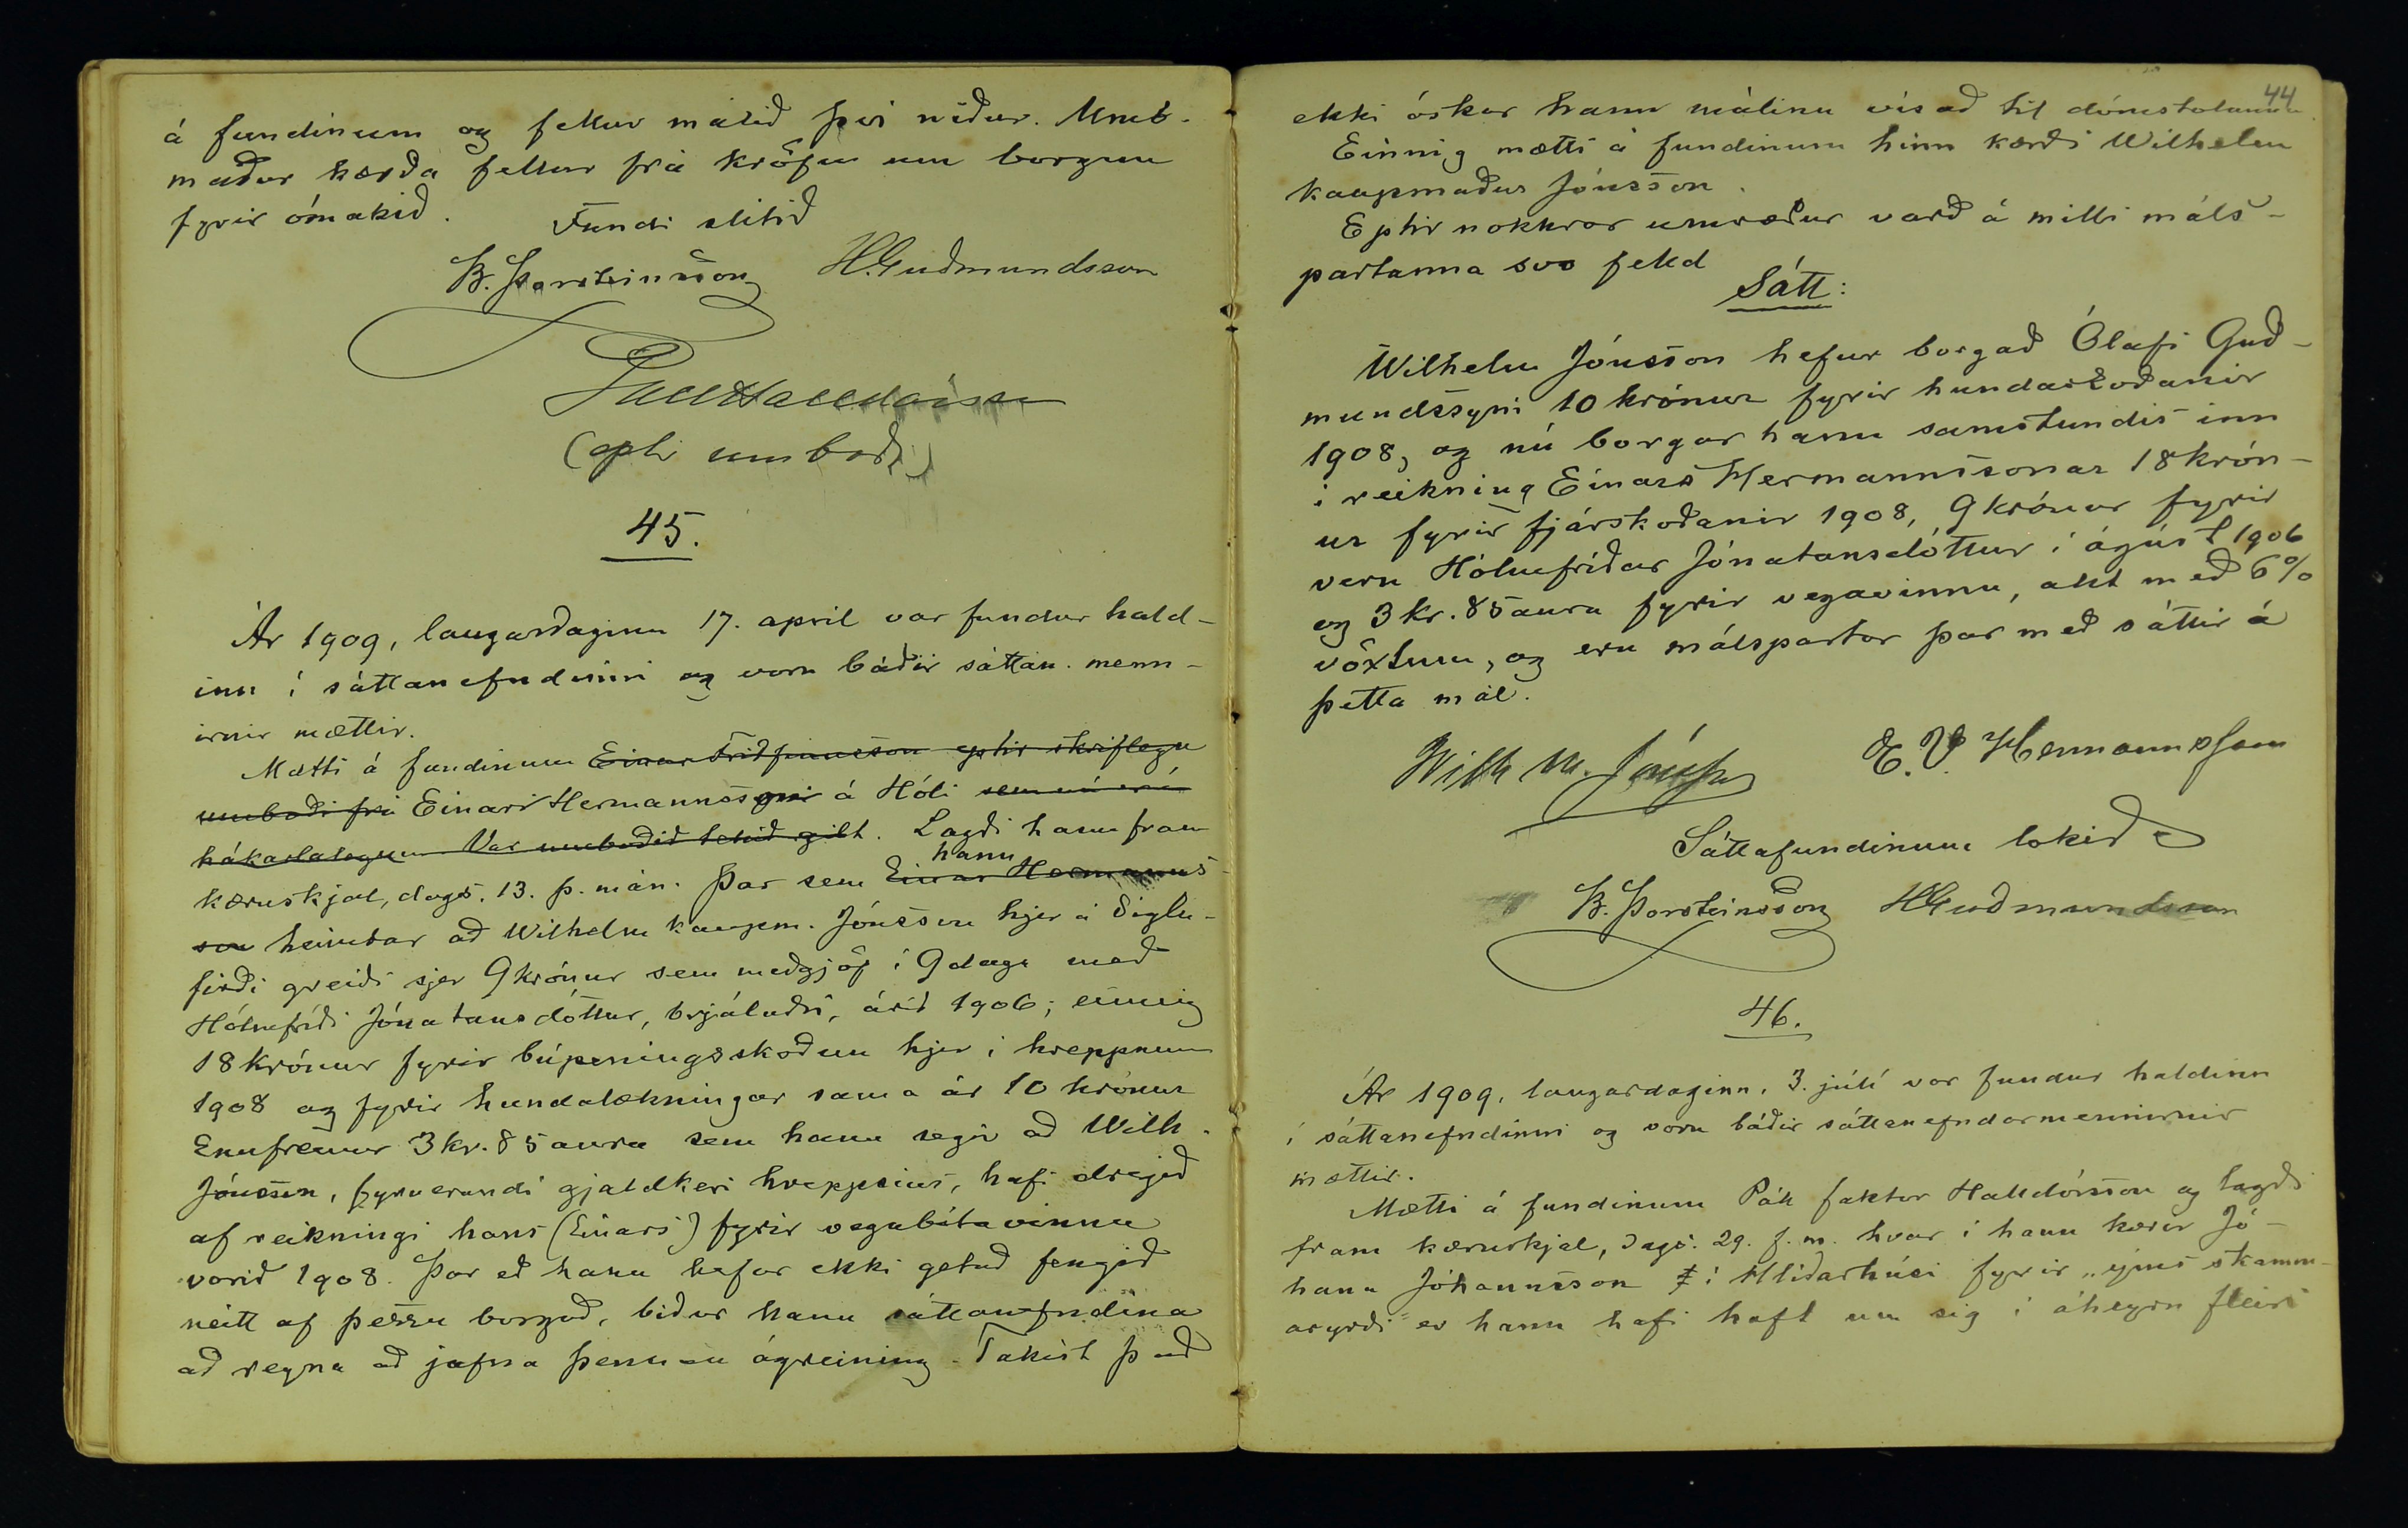 á fundinum og fellur málið því niður. Umb-
maður kærða fellur frá kröfu um borgun
fyrir ómakið.
Fundi slitið
B. Þorsteinsson HGuðmundsson
Páll Halldórsson
(eptir umboði)
45.
Ár 1909, laugardaginn 17. apríl var fundur hald-
inn í sáttanefndinni og voru báðir sáttan. menn-
irnir mættir.
Mætti á fundinum Einar Friðfinnsson eptir skriflegu
umboði frá Einari Hermannssyni á Hóli sem nú er í
hákarlalegum Var umboðið tekið gilt. Lagði hann fram
kæruskjal, dags. 13. þ. mán. Þar sem Einar Hermanns-
hann
son heimtar að Wilhelm kaupm. Jónsson hjer á Siglu-
firði greiði sjer 9 krónur sem meðgjöf í 9 daga með
Hólmfríði Jónatansdóttur, brjálaðri, árið 1906; einnig
18 krónur fyrir búpeningsskoðun hjer í hreppnum
1908 og fyrir hundalækningar sama ár 10 krónur
Ennfremur 3 kr. 85 aura sem hann segir að Wilh.
Jónsson, fyrverandi gjaldkeri hreppsins, hafi dregið
af reikningi hans (Einars) fyrir vegabótavinnu
vorið 1908. Þar eð hann hefur ekki getað fengið
neitt af þessu borgað, biður hann sáttanefndina
að reyna að jafna þennan ágreining. Takist það
44
ekki óskar hann málinu vísað til dómstólanna.
Einnig mætti á fundinum hinn kærði Wilhelm
kaupmaður Jónsson.
Eptir nokkrar umræður varð á milli máls-
partanna svo felld
Sátt:
Wilhelm Jónsson hefur borgað Ólafi Guð-
mundssyni 10 krónur fyrir hundaskoðanir
1908, og nú borgar hann samstundis inn
í reikning Einars Hermannssonar 18 krón-
ur fyrir fjárskoðanir 1908, 9 krónur fyrir
veru Hólmfríðar Jónatansdóttur í ágúst 1906
og 3 kr. 85 aura fyrir vegavinnu, allt með 6%
vöxtum, og eru málspartar þar með sáttir á
þetta mál.
Wilh M. Jónsson E. V. Hermannsson
Sáttafundinum lokið
B. Þorsteinsson HGuðmundsson
46.
Ár 1909, laugardaginn, 3. júlí var fundur haldinn
í sáttanefndinni og voru báðir sáttanefndarmennirnir
mættir.
Mætti á fundinum Páll faktor Halldórsson og lagði
fram kæruskjal, dags. 29. f. m. hvar í hann kærir Jó-
hann Jóhannsson í Hlíðarhúsi fyrir „ýms skamm-
aryrði" er hann hafi haft um sig í áheyrn fleiri